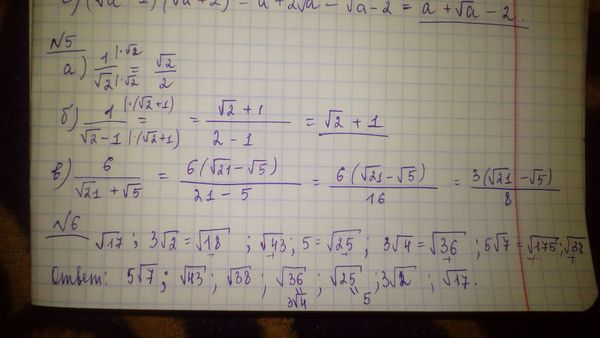 (√a − 1)(√a + 2) = a + 2√a − √a − 2 = a + √a − 2.
№5
а) 1/√2 |·√2 |·√2 = √2/2
б) 1/(√2 − 1) |·(√2+1) |·(√2+1) = = (√2 + 1)/(2 − 1) = √2 + 1
в) 6/(√21 + √5) = 6(√21 − √5)/(21 − 5) = 6(√21 − √5)/16 = 3(√21 − √5)/8
№6
√17 ; 3√2 = √18 ; √43 ; 5 = √25 ; 3√4 = √36 ; 5√7 = √175 ; √38
Ответ: 5√7 ; √43 ; √38 ; √36 ; √25 ; 3√2 ; √17.
3√4 5